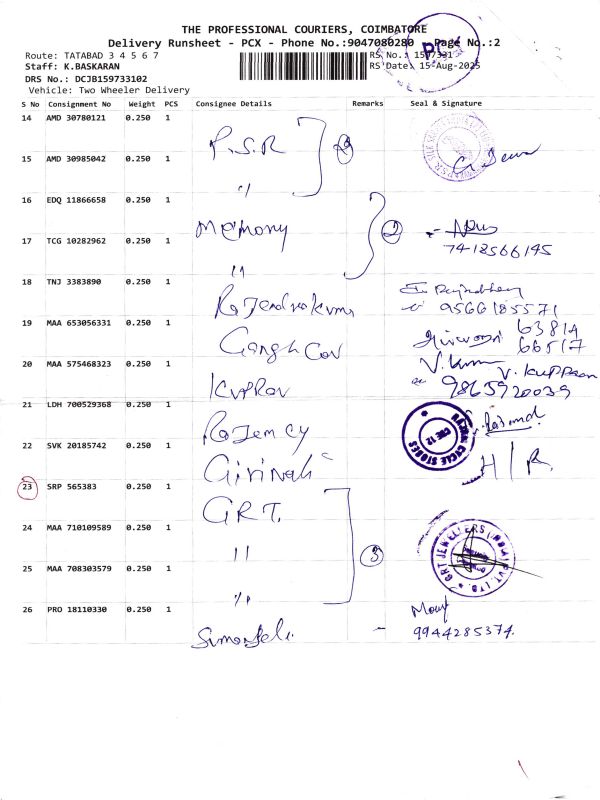 THE PROFESSIONAL COURIERS, COIMBATORE
Delivery Runsheet - PCX - Phone No.:9047080280 Page No.:2
Route: TATABAD 3 4 5 6 7
RS No.: 1597331
Staff: K.BASKARAN
RS Date: 15-Aug-2025
DRS No.: DCJB159733102
Vehicle: Two Wheeler Delivery
S No Consignment No Weight PCS Consignee Details Remarks Seal & Signature
14 AMD 30780121 0.250 1 P.S.R
15 AMD 30985042 0.250 1 "
16 EDQ 11866658 0.250 1 Memony 2
17 TCG 10282962 0.250 1 " 7418566145
18 TNJ 3383890 0.250 1 Rajendrakumar 9566185571
19 MAA 653056331 0.250 1 63814 66517
20 MAA 575468323 0.250 1 V.Kuppan 9865920039
21 LDH 700529368 0.250 1 CYCLE STORES CBE 12
22 SVK 20185742 0.250 1
23 SRP 565383 0.250 1 GRT.
24 MAA 710109589 0.250 1 " 3 GRT JEWELLERS (INDIA) PVT. LTD.
25 MAA 708303579 0.250 1 "
26 PRO 18110330 0.250 1 9944285374.